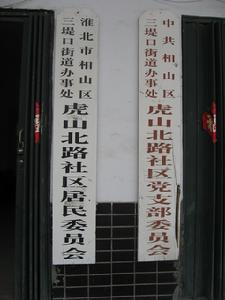 中共相山区
三堤口街道办事处
虎山北路社区党支部委员会
淮北市相山区
三堤口街道办事处
虎山北路社区居民委员会